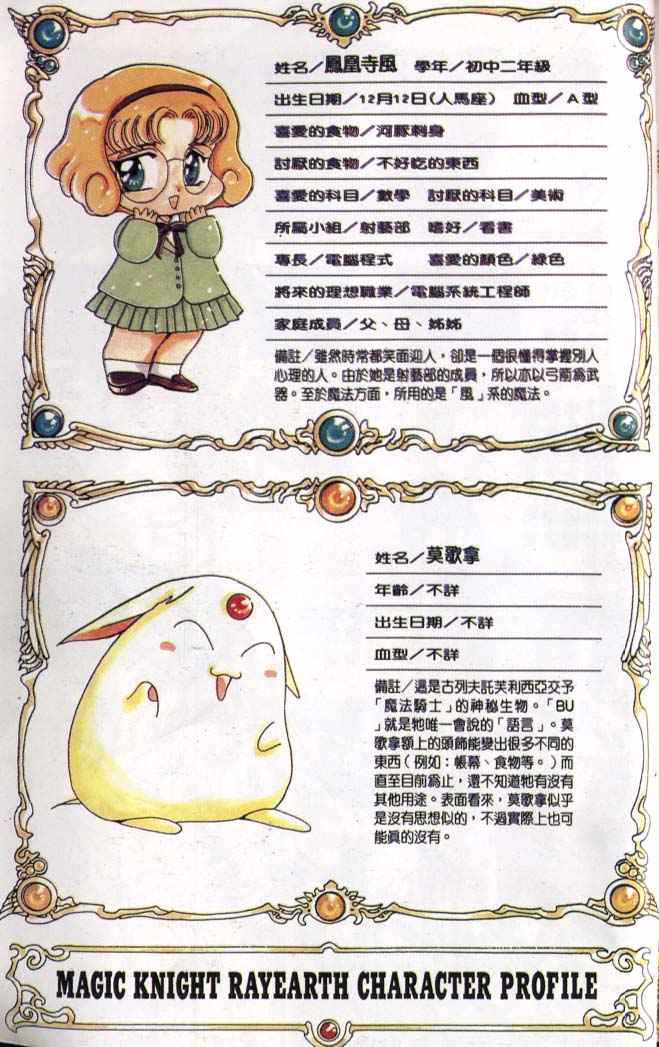 姓名／鳳凰寺風　學年／初中二年級
出生日期／12月12日(人馬座)　血型／A型
喜愛的食物／河豚刺身
討厭的食物／不好吃的東西
喜愛的科目／數學　討厭的科目／美術
所屬小組／射藝部　嗜好／看書
專長／電腦程式　喜愛的顏色／綠色
將來的理想職業／電腦系統工程師
家庭成員／父、母、姊姊
備註／雖然時常都笑面迎人，卻是一個很懂得掌握別人
心理的人。由於她是射藝部的成員，所以亦以弓箭為武
器。至於魔法方面，所用的是「風」系的魔法。
姓名／莫歌拿
年齡／不詳
出生日期／不詳
血型／不詳
備註／這是古列夫託芙利西亞交予
「魔法騎士」的神秘生物。「BU
」就是牠唯一會說的「語言」。莫
歌拿額上的頭飾能變出很多不同的
東西（例如：帳幕、食物等。）而
直至目前為止，還不知道牠有沒有
其他用途。表面看來，莫歌拿似乎
是沒有思想似的，不過實際上也可
能真的沒有。
MAGIC KNIGHT RAYEARTH CHARACTER PROFILE